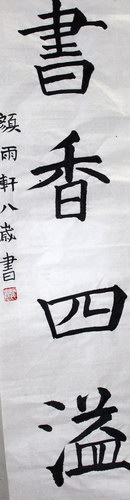 書香四溢
顏雨軒八歲書